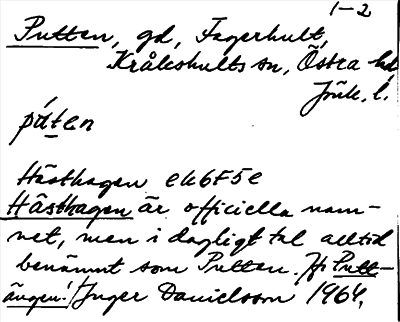 1-2
Putten, gd, Fagerhult,
Kråkshults sn, Östra hd
Jönk. l.
pút̀en
Hästhagen ek6F5e
Hästhagen är officiella nam-
net, men i dagligt tal alltid
benämnt som Putten. Jfr Putt-
ängen! Inger Danielsson 1964.